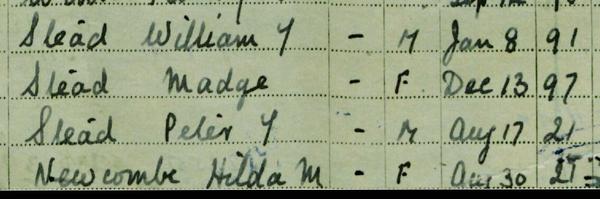 Stead William Y - M Jan 8 91
Stead Madge - F Dec 13 97
Stead Peter Y - M Aug 17 21
Newcombe Hilda M - F Aug 30